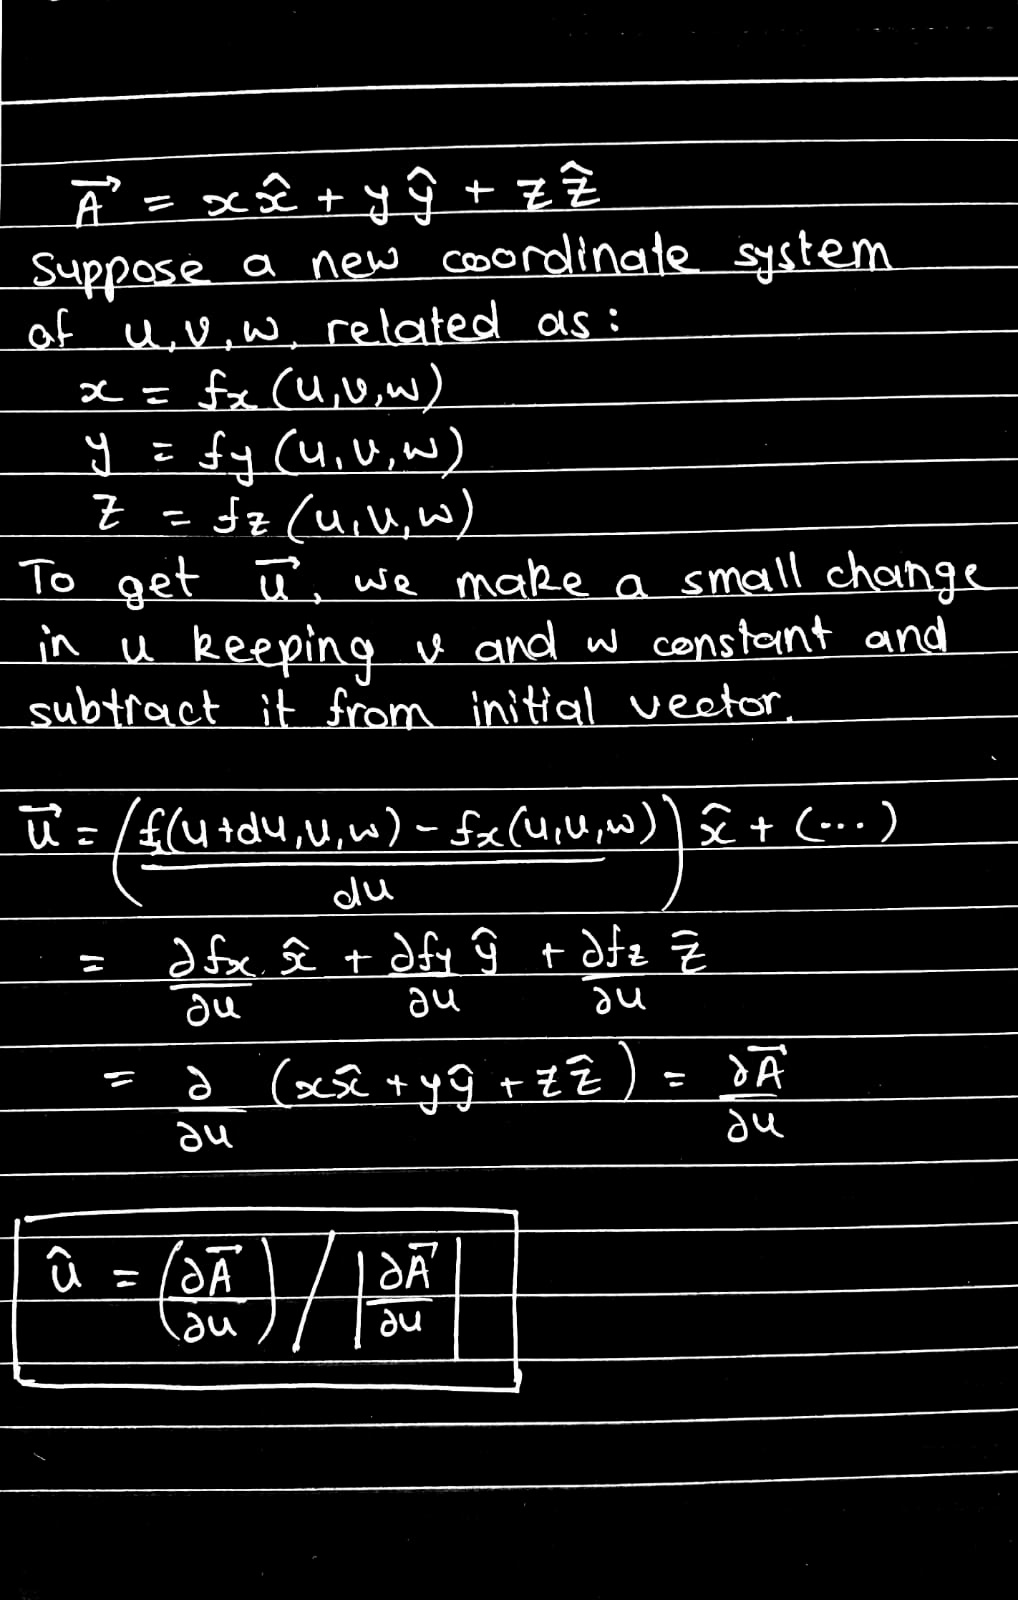 A⃗ = x x̂ + y ŷ + z ẑ
Suppose a new coordinate system
of u, v, w, related as:
x = fx (u,v,w)
y = fy (u,v,w)
z = fz (u,v,w)
To get u⃗, we make a small change
in u keeping v and w constant and
subtract it from initial vector.
u⃗ = ( (fx(u+du,v,w) - fx(u,v,w)) / du ) x̂ + (...)
= ∂fx/∂u x̂ + ∂fy/∂u ŷ + ∂fz/∂u ẑ
= ∂/∂u (x x̂ + y ŷ + z ẑ) = ∂A⃗/∂u
û = (∂A⃗/∂u) / |∂A⃗/∂u|